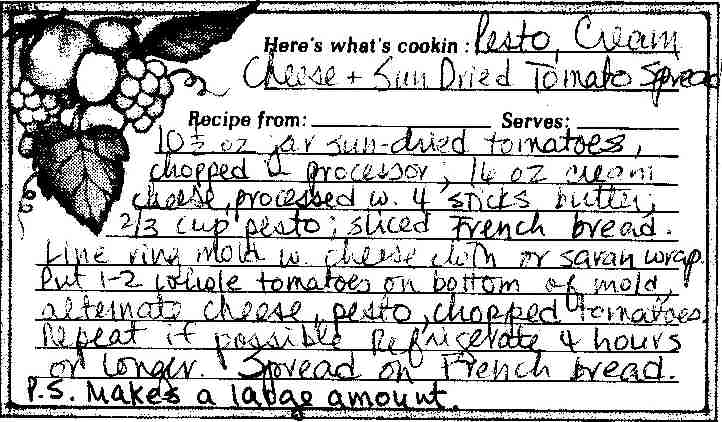 Here's what's cookin: Pesto, Cream
Cheese + Sun Dried Tomato Spread
Recipe from: Serves:
10 1/2 oz jar sun-dried tomatoes,
chopped in processor; 16 oz cream
cheese, processed w. 4 sticks butter;
2/3 cup pesto; sliced French bread.
Line ring mold w. cheese cloth or saran wrap.
Put 1-2 whole tomatoes on bottom of mold,
alternate cheese, pesto, chopped tomatoes.
Repeat if possible Refrigerate 4 hours
or longer. Spread on French bread.
P.S. Makes a large amount.